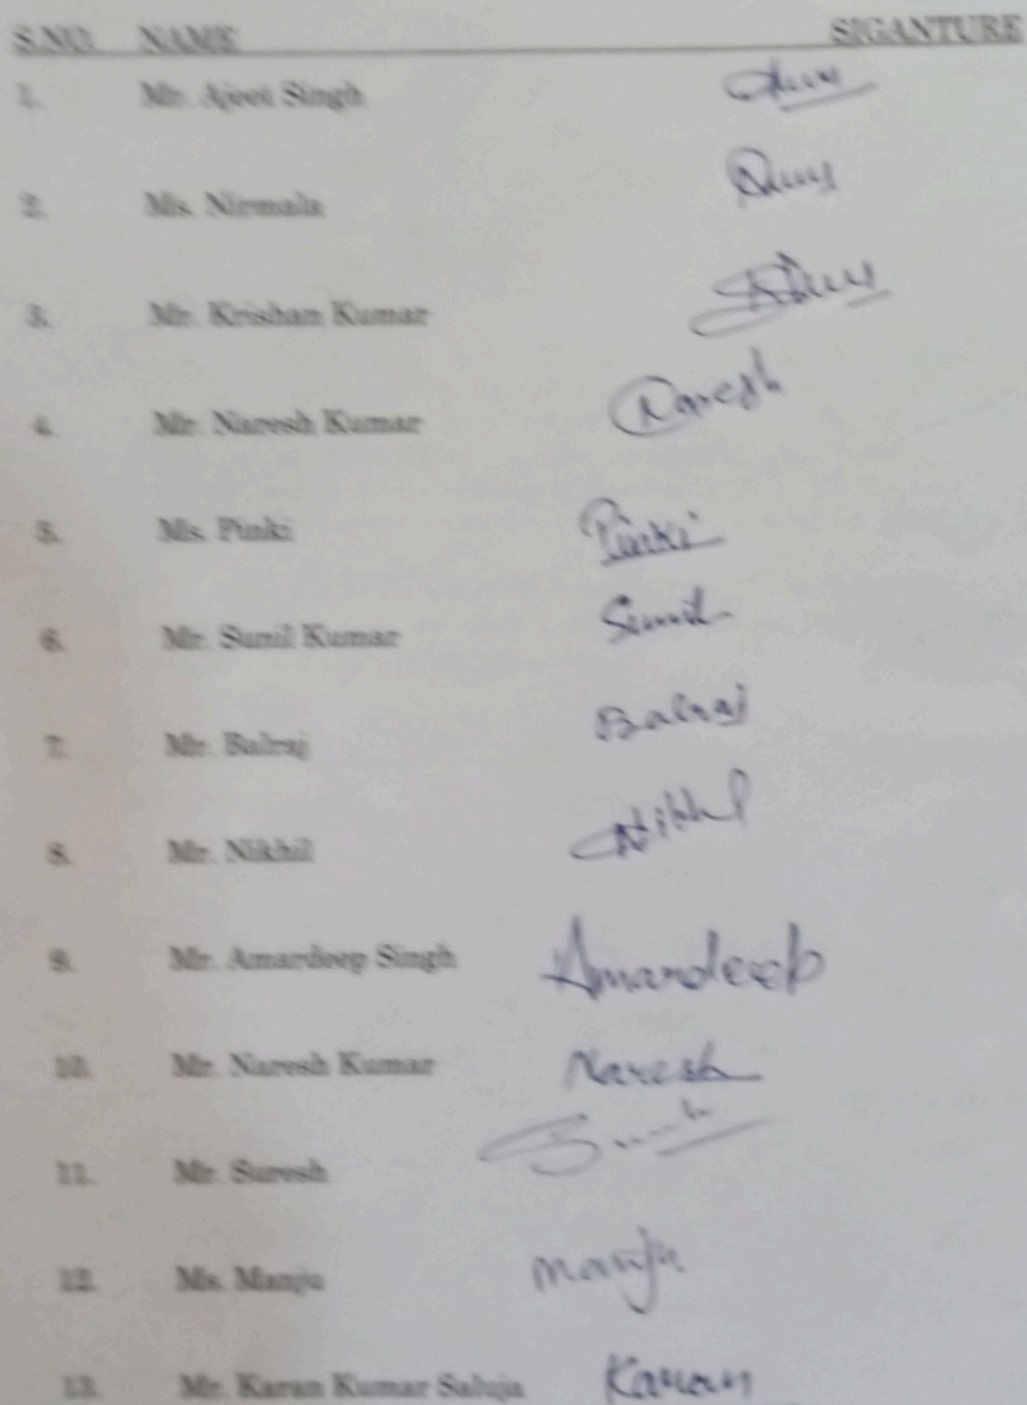 S.NO. NAME SIGANTURE
1. Mr. Ajeet Singh
2. Ms. Nirmala
3. Mr. Krishan Kumar
4. Mr. Naresh Kumar Naresh
5. Ms. Pinki Pinki
6. Mr. Sunil Kumar Sunil
7. Mr. Balraj Balraj
8. Mr. Nikhil Nikhil
9. Mr. Amardeep Singh Amardeep
10. Mr. Naresh Kumar Naresh
11. Mr. Suresh
12. Ms. Manju Manju
13. Mr. Karan Kumar Saluja Karan